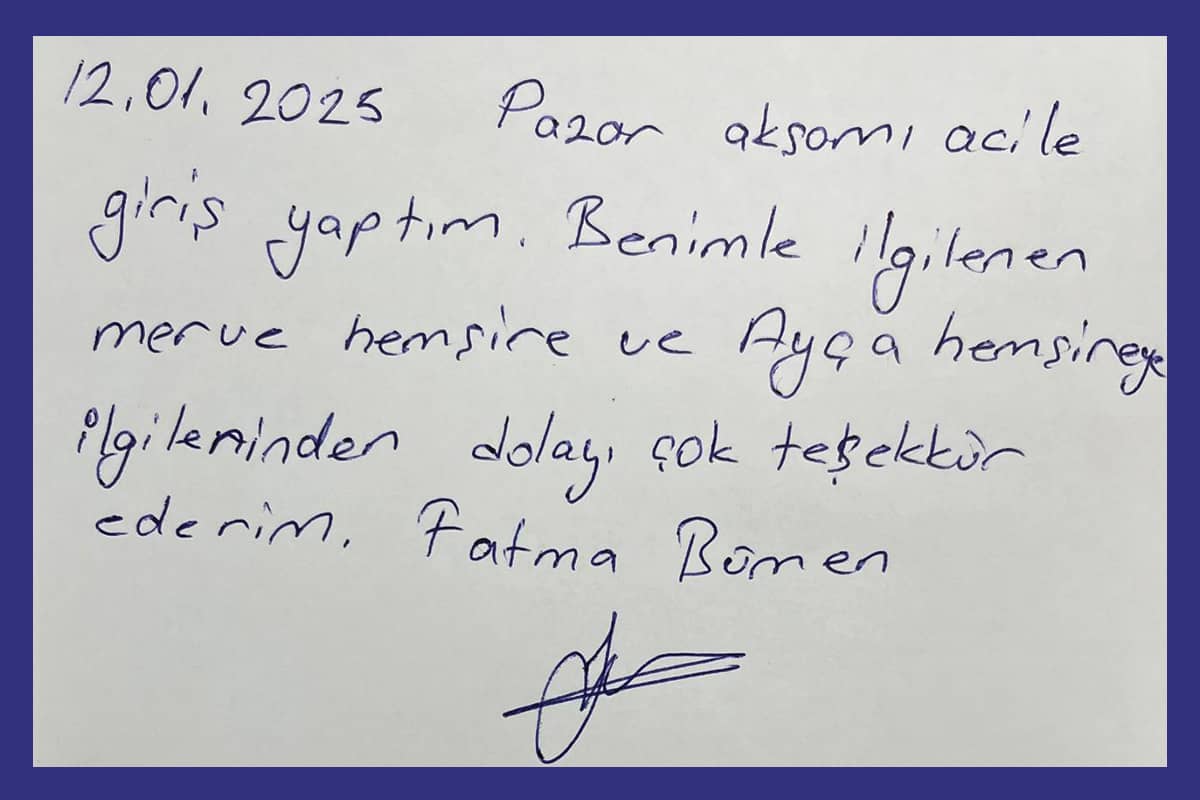 12.01.2025 Pazar akşamı acile
giriş yaptım. Benimle ilgilenen
merve hemşire ve Ayça hemşireye
ilgileninden dolayı çok teşekkür
ederim. Fatma Bümen